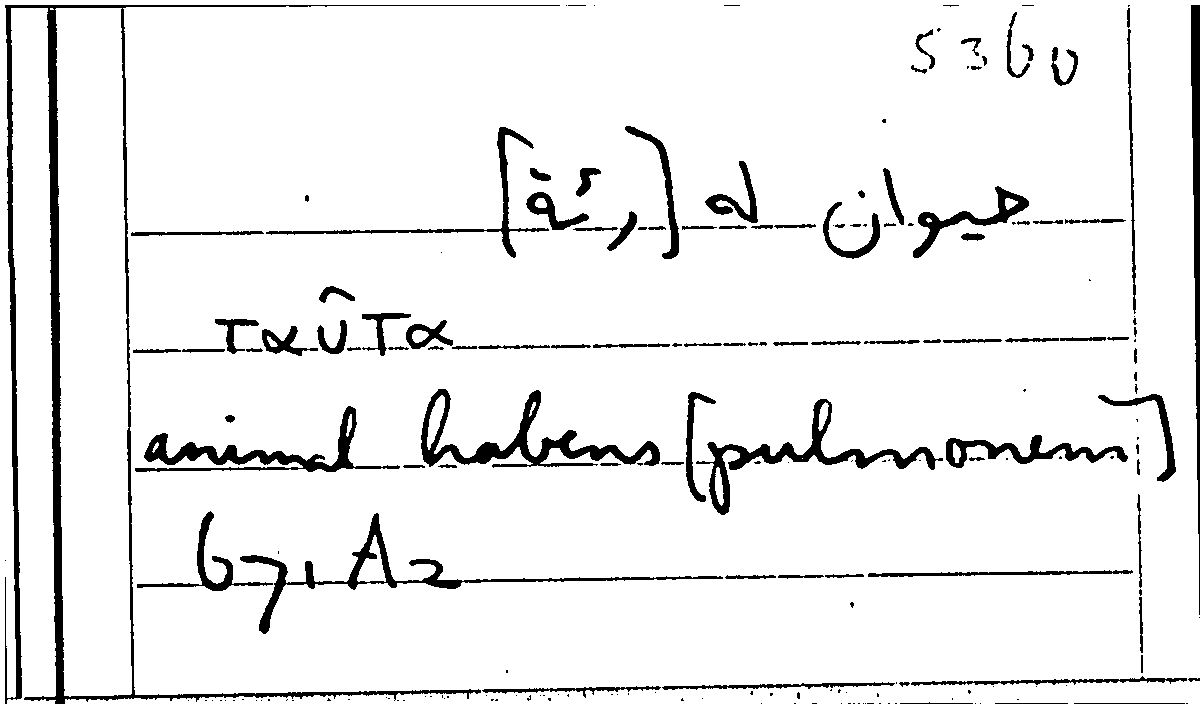 5360
حيوان له [رئة]
ταῦτα
animal habens [pulmonem]
671A2